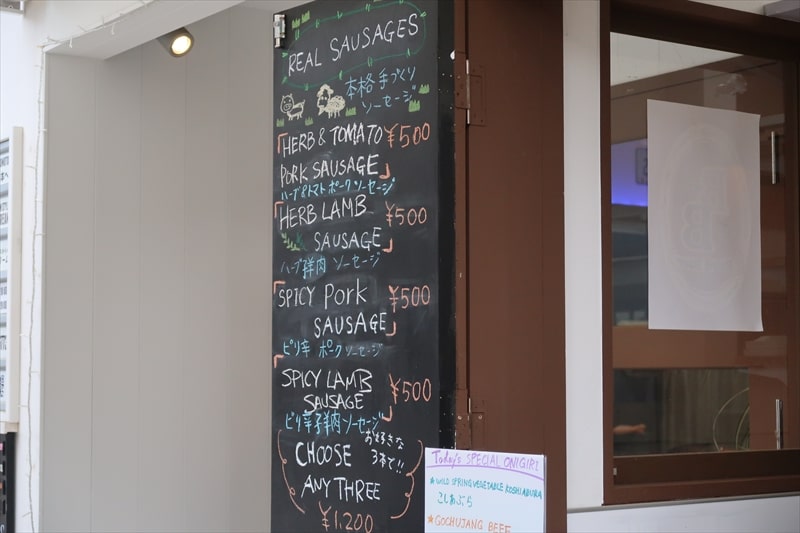 REAL SAUSAGES
本格手づくり
ソーセージ
「HERB & TOMATO ¥500
PORK SAUSAGE」
ハーブ&トマト ポーク ソーセージ
「HERB LAMB ¥500
SAUSAGE」
ハーブ羊肉 ソーセージ
「SPICY Pork ¥500
SAUSAGE」
ピリ辛 ポーク ソーセージ
「SPICY LAMB ¥500
SAUSAGE」
ピリ辛羊肉ソーセージ
お好きな
3本で!!
CHOOSE
ANY THREE
¥1,200
Today's SPECIAL ONIGIRI
★WILD SPRING VEGETABLE KOSHIABURA
こしあぶら
★GOCHUJANG BEEF